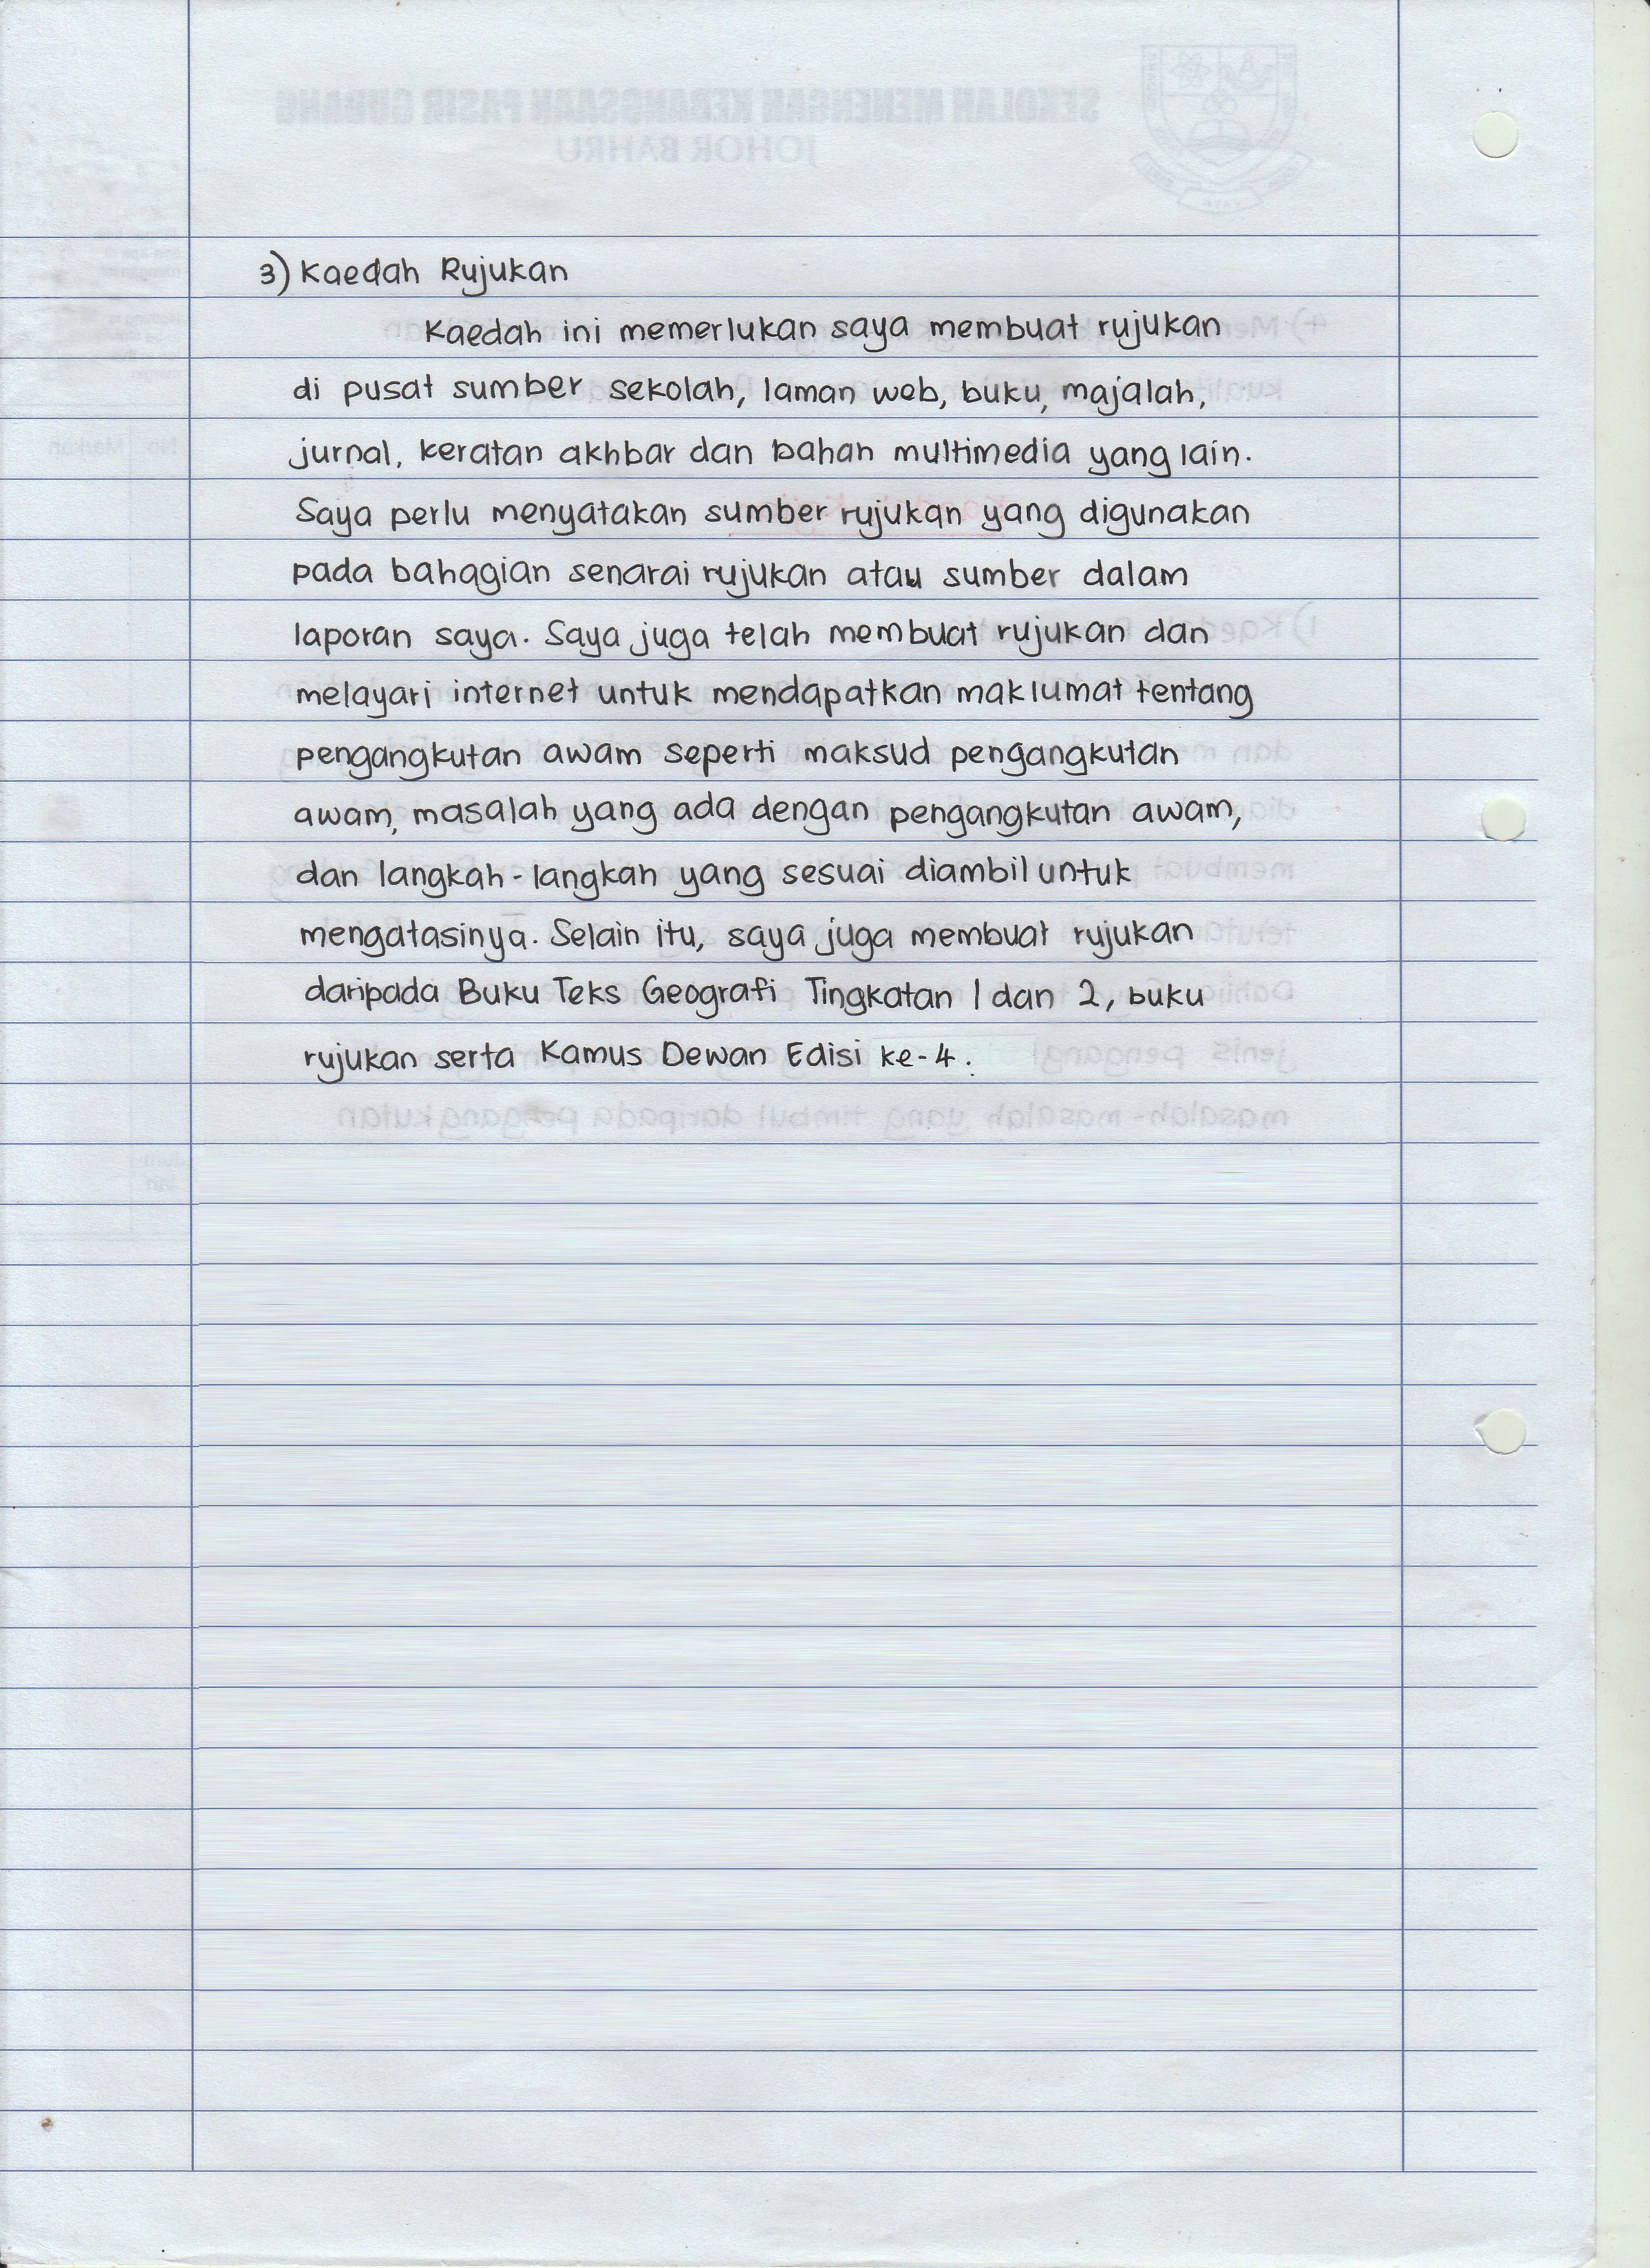 3) Kaedah Rujukan
Kaedah ini memerlukan saya membuat rujukan
di pusat sumber sekolah, laman web, buku, majalah,
jurnal, keratan akhbar dan bahan multimedia yang lain.
Saya perlu menyatakan sumber rujukan yang digunakan
pada bahagian senarai rujukan atau sumber dalam
laporan saya. Saya juga telah membuat rujukan dan
melayari internet untuk mendapatkan maklumat tentang
pengangkutan awam seperti maksud pengangkutan
awam, masalah yang ada dengan pengangkutan awam,
dan langkah-langkah yang sesuai diambil untuk
mengatasinya. Selain itu, saya juga membuat rujukan
daripada Buku Teks Geografi Tingkatan 1 dan 2, buku
rujukan serta Kamus Dewan Edisi ke-4.
SEKOLAH MENENGAH KEBANGSAAN PASIR GUDANG
JOHOR BAHRU
masalah-masalah yang timbul daripada pengangkutan